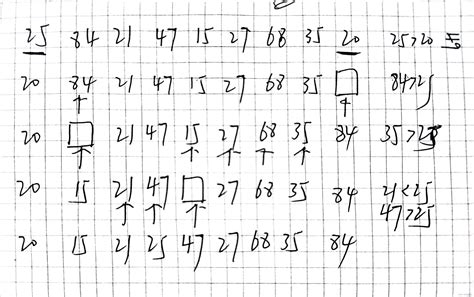 25 84 21 47 15 27 68 35 20 25>20
20 84 21 47 15 27 68 35 □ 84>25
20 □ 21 47 15 27 68 35 84 35>25
20 15 21 47 □ 27 68 35 84 21<25
47>25
20 15 21 25 47 27 68 35 84